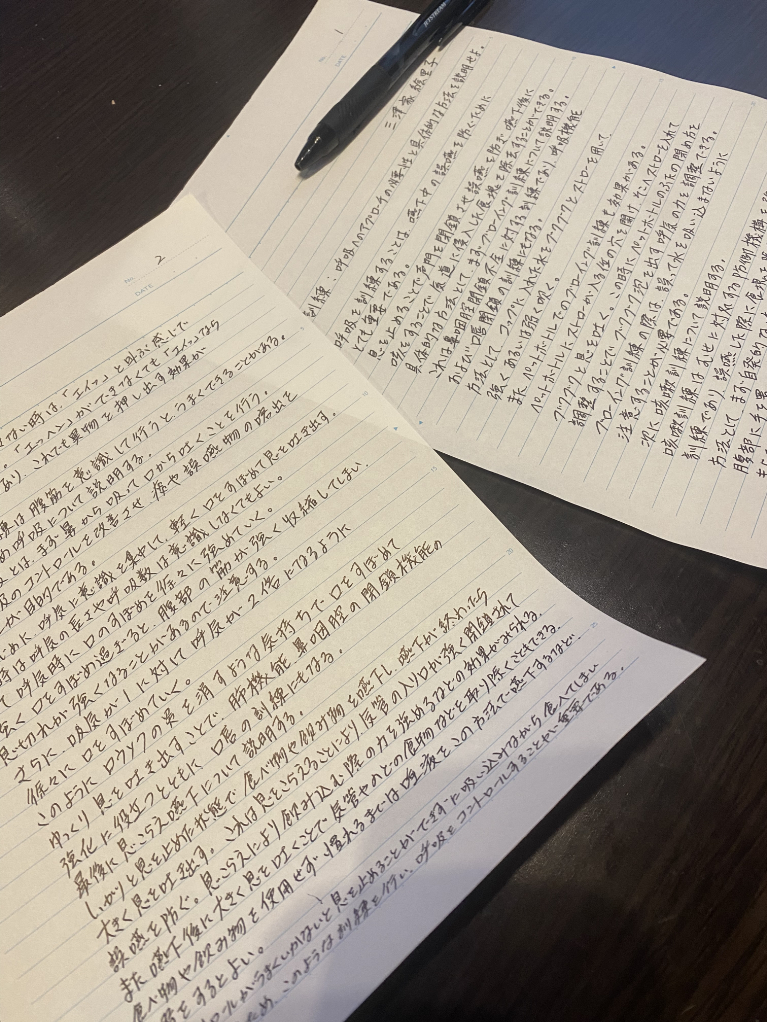 No. 1
DATE
三津家 絵里子
訓練：呼吸へのアプローチの必要性と具体的な方法を説明せよ。
呼吸を訓練することは、嚥下中の誤嚥を防ぐために
とても重要である。
息を止めることで声門を閉鎖させ誤嚥を防ぎ、嚥下後に
咳をすることで気道に侵入した食塊を除去することができる。
具体的な方法として、まずブローイング訓練について説明する。
これは鼻咽腔閉鎖不全に対する訓練であり、呼吸機能
および口唇閉鎖の訓練にもなる。
方法として、コップに入れた水をブクブクとストローを用いて
強くあるいは弱く吹く。
また、ペットボトルでのブローイング訓練も効果がある。
ペットボトルにストローが入る位の穴を開け、そこへストローを入れて
ブクブクと息を吐く。この時にペットボトルのふたの閉め方を
調整することで、ブクブク泡を出す呼気の力を調整できる。
ブローイング訓練の際は、誤って水を吸い込まないように
注意することが必要である。
次に咳嗽訓練について説明する。
咳嗽訓練はむせと対応する防御機構を強
訓練であり、誤嚥した際に食塊を
方法として、まず自発的な
腹部に手を置
No. 2
DATE
ない時は、「エヘッ」と耳が感じて
。「エッヘン」ができなくても「エヘッ」なら
あり、これでも異物を押し出す効果が
練は腹筋を意識して行うと、うまくできることがある。
め呼吸について説明する。
とは、まず鼻から吸って口から吐くことを行う。
吸のコントロールを改善させ、痰や誤嚥物の喀出を
が目的である。
じめに、呼気に意識を集中して、軽く口をすぼめて息を吐き出す。
時は呼気の長さや呼吸数は意識しなくてもよい。
て呼気時に口のすぼめを徐々に強めていく。
強く口をすぼめ過ぎると、腹部の筋が強く収縮してしまい、
息切れが強くなることがあるので注意する。
さらに、吸気が1に対して呼気が2倍になるように
徐々に口をすぼめていく。
このように、ロウソクの炎を消すような気持ちで口をすぼめて
ゆっくり息を吐き出すことで、肺機能、鼻咽腔の閉鎖機能の
強化に役立つとともに、口唇の訓練にもなる。
最後に息こらえ嚥下について説明する。
しっかりと息を止めた状態で食べ物や飲み物を嚥下し、嚥下が終わったら
大きく息を吐き出す。これは息をこらえることにより気管の入り口が強く閉鎖されて
誤嚥を防ぐ。息こらえにより飲み込む際の力を強めるなどの効果がみられる。
また嚥下後に大きく息を吐くことで気管やのどの食物などを取り除くこともできる。
食べ物や飲み物を使用せず、慣れるまでは唾液をこの方法で嚥下するなど、
習をするとよい。
ロールがうまくいかないと息を止めることができずに吸い込みながら食べてしまい
ため、このような訓練を行い、呼吸をコントロールすることが重要である。